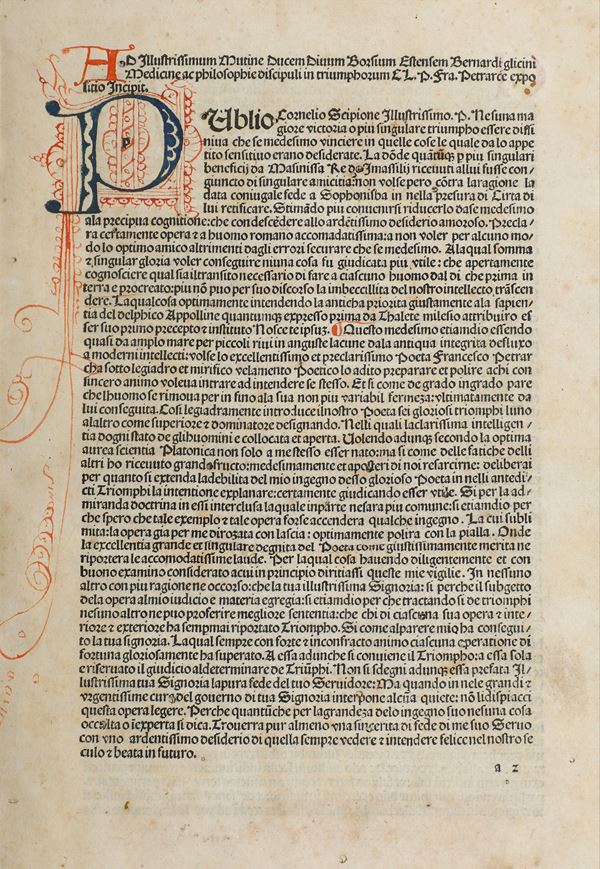 AD Illustrissimum Mutine Ducem Diuum Borsium Estensem Bernardi glicini
Medicine ac philosophie discipuli in triumphorum CL. P. Fra. Petrarce expo
sitio Incipit.
PUblio Cornelio Scipione Illustrissimo. P. Nesuna ma
giore victoria o piu singulare triumpho essere diffi
niua che se medesimo vinciere in quelle cose le quale da lo appe
tito sensitiuo erano desiderate. La dōde quātūq̄ p piu singulari
beneficij da Masinissa Re de Imassilij riceuuti allui fusse con
giuncto di singulare amicitia: non volse pero cōtra laragione la
data coniugale sede a Sophonisba in nella presura di Cirta di
lui retificare. Stimādo piu conuenirsi riducerlo dase medesimo
ala precipua cognitione: che con descēdere allo ardētissimo desiderio amoroso. Precla
ra certamente opera ⁊ a huomo romano accomodatissima: a non voler per alcuno mo
do lo optimo amico altrimenti dagli errori securare che se medesimo. Ala qual somma
⁊ singular gloria voler conseguire niuna cosa fu giudicata piu vtile: che apertamente
cognosciere qual sia il transito necessario di fare a ciascuno huomo dal di che prima in
terra e procreato: piu nō puo per suo discorso la imbecillita del nostro intellecto trāscen
dere. La qual cosa optimamente intendendo la anticha priorita giustamente ala sapien
tia del delphico Appolline quantunque expresso prima da Thalete milesio attribuiro es
ser suo primo precepto ⁊ instituto Nosce te ipsuz. Questo medesimo etiamdio essendo
quasi da amplo mare per piccoli riui in anguste lacune dala antiqua integrita defluxo
a moderni intellecti: volse lo excellentissimo et preclarissimo Poeta Francesco Petrar
cha sotto legiadro et mirifico velamento Poetico lo adito preparare et polire achi con
sincero animo voleua intrare ad intendere se stesso. Et si come de grado in grado pare
che lhuomo se rimoua per in fino ala sua non piu variabil fermeza: vltimatamente da
lui conseguita. Cosi legiadramente introduce il nostro Poeta sei gloriosi triumphi luno
al altro come superiore ⁊ dominatore designando. Nelli quali la clarissima intelligen
tia dogni stato de gli huomini e collocata et aperta. Uolendo adunq̄ secondo la optima
aurea scientia Platonica non solo a me stesso esser nato: ma si come delle fatiche delli
altri ho riceuuto grande fructo: medesimamente et a posteri di noi resarcirne: deliberai
per quanto si extenda la debilita del mio ingegno desso glorioso Poeta in nelli antedi
cti Triumphi la intentione explanare: certamente giudicando esser vtile. Si per la ad
miranda doctrina in essi interclusa la quale in parte nesara piu comune: si etiamdio per
che spero che tale exemplo ⁊ tale opera forse accendera qualche ingegno. La cui subli
mita: la opera gia per me dirozata con lascia: optimamente polira con la pialla. Onde
la excellentia grande et singulare degnita del Poeta come giustissimamente merita ne
riportera le accomodatissime laude. Per la qual cosa hauendo diligentemente et con
buono examino considerato a cui in principio diritiassi queste mie vigilie. In nessuno
altro con piu ragione ne occorso: che la tua illustrissima Signoria: si perche il subgetto
de la opera al mio iudicio e materia egregia: si etiamdio per che tractando si de triomphi
nesuno altro ne puo proferire megliore sententia: che chi di ciascuna sua opera ⁊ inte
riore ⁊ exteriore ha sempmai riportato Triompho. Si come al parere mio ha consegui
to la tua signoria. La qual sempre con forte ⁊ inconfracto animo ciascuna operatione di
fortuna gloriosamente ha superato. A essa adunche si conuiene il Triompho: a essa sola
e riseruato il giudicio al determinare de Triūphi. Non si sdegni adunq̄ essa prefata Il
lustrissima tua Signoria la pura fede del tuo Seruidore: Ma quando in nele grandi ⁊
vrgentissime cure del gouerno di tua Signoria interpone alcūa quiete: nō li dispiacci
questa opera legere. Perche quantūche per la grandeza delo ingegno suo nesuna cosa
occulta o īexperta si dica. Trouerra pur almeno vna sincerita di fede di me suo Seruo
con vno ardentissimo desiderio di quella sempre vedere ⁊ intendere felice nel nostro se
culo ⁊ beata in futuro.
a 2